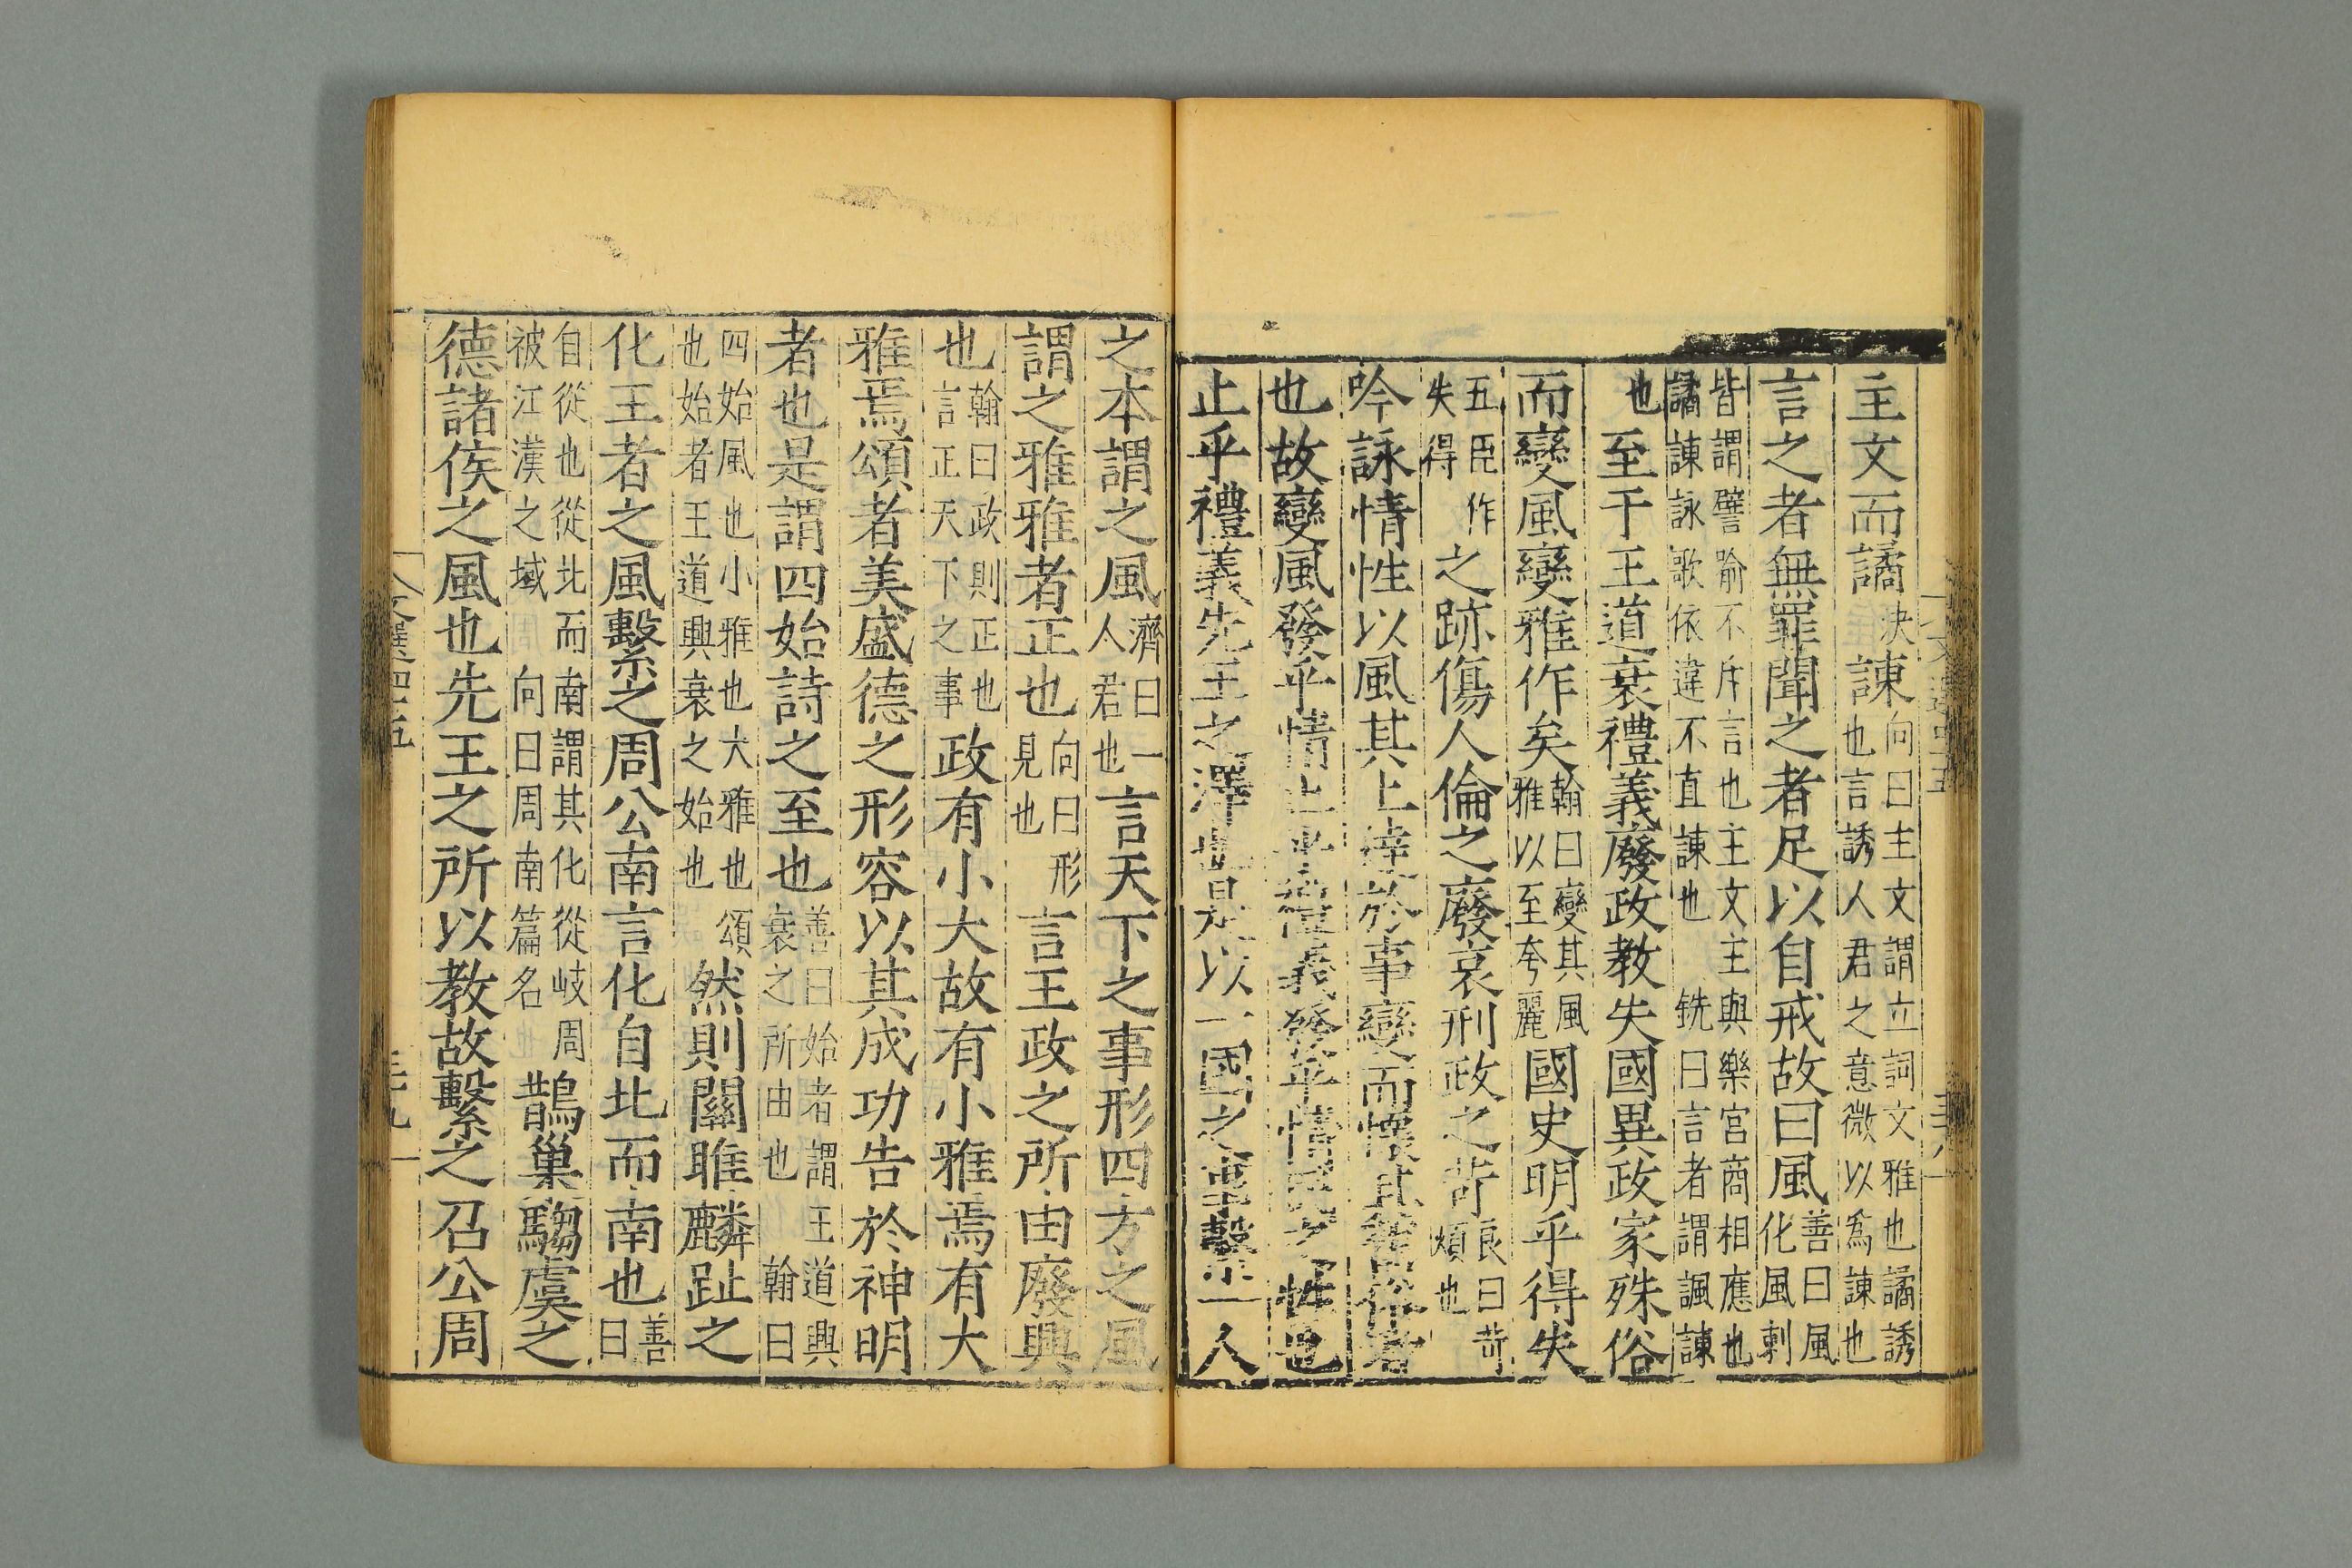 主文而譎決諫向曰主文謂立詞文雅也譎誘也言誘人君之意微以爲諫也
言之者無罪聞之者足以自戒故曰風善曰風化風刺
皆謂譬喻不斥言也主文主與樂宮商相應也譎諫詠歌依違不直諫也 銑曰言者謂諷諫
也至于王道衰禮義廢政教失國異政家殊俗
而變風變雅作矣翰曰變其風雅以至夸麗國史明乎得失
五臣作失得之跡傷人倫之廢哀刑政之苛良曰苛煩也
吟詠情性以風其上達於事變而懷其舊俗者
也故變風發乎情止乎禮義發乎情民之性也
止乎禮義先王之澤也是以一國之事繫一人
之本謂之風濟曰一人君也言天下之事形四方之風
謂之雅雅者正也向曰形見也言王政之所由廢興
也翰曰政則正也言正天下之事政有小大故有小雅焉有大
雅焉頌者美盛德之形容以其成功告於神明
者也是謂四始詩之至也善曰始者謂王道興衰之所由也 翰曰
四始風也小雅也大雅也頌也始者王道興衰之始也然則關雎麟趾之
化王者之風繫之周公南言化自北而南也善曰
自從也從北而南謂其化從岐周被江漢之域 向曰周南篇名鵲巢騶虞之
德諸侯之風也先王之所以教故繫之召公周
文選四十五
三十九